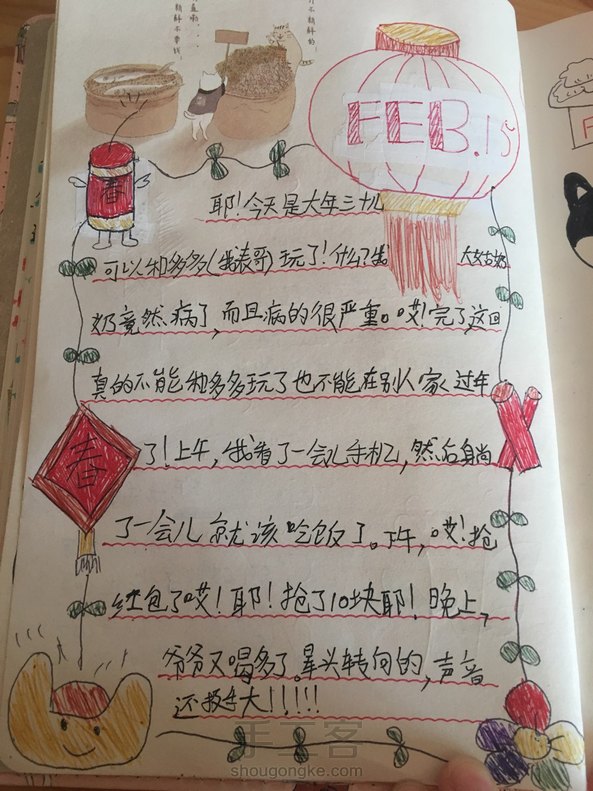 新鲜不要钱
FEB.15
耶!今天是大年三十儿
可以和多多(我表哥)玩了!什么?我大姑奶
奶竟然病了,而且病的很严重。哎!完了,这回
真的不能和多多玩了也不能在别人家过年
春
了!上午,我看了一会儿手机,然后躺
了一会儿就该吃饭了。下午,哎!抢
红包了哎!耶!抢了10块耶!晚上,
爷爷又喝多了。晕头转向的,声音
还投大!!!!!
春
手工客
shougongke.com